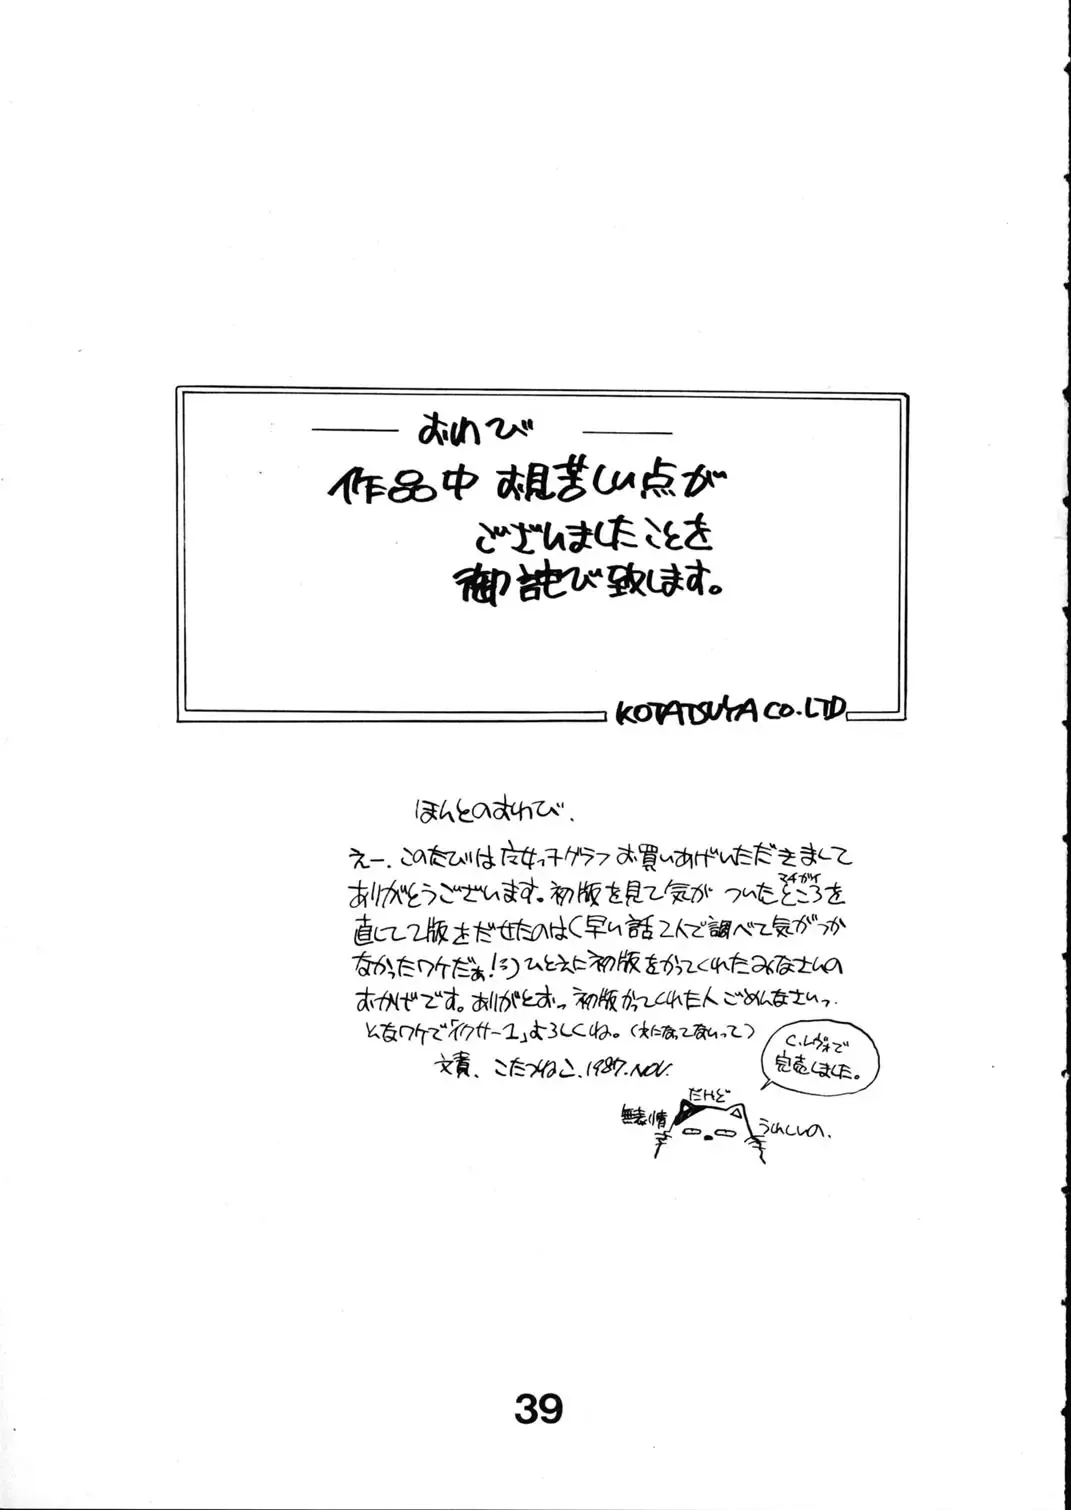 おわび
作品中 お見苦しい点が
ございましたことを
御詫び致します。
KOTATSUYA CO.LTD
ほんとのおわび.
えー. このたびは 女っ子グラフ お買いあげいただきまして
ありがとうございます。初版を見て気が ついたところを
マチガイ
直して2版をだせたのは(早い話2人で調べて気がつか
なかったワケだぁ!う)ひとえに初版をかってくれたみなさいの
おかげです。ありがとおっ 初版かってくれた人 ごめんなさいっ.
とゆなワケで「イクサー1」よろしくね。(えになってないって)
文責. こたつねこ. 1987. NOV.
C.レヴォで
完売しました。
だけど
無表情
うれしいの.
39